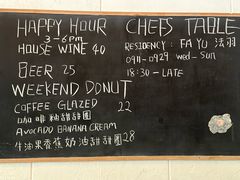 HAPPY HOUR
3-6pm
HOUSE WINE 40
BEER 25
WEEKEND DONUT
COFFEE GLAZED 22
咖啡釉甜甜圈
AVOCADO BANANA CREAM
牛油果香蕉奶油甜甜圈 28
CHEFS TABLE
RESIDENCY: FA YU 法羽
0911-0929 Wed-Sun
18:30-LATE